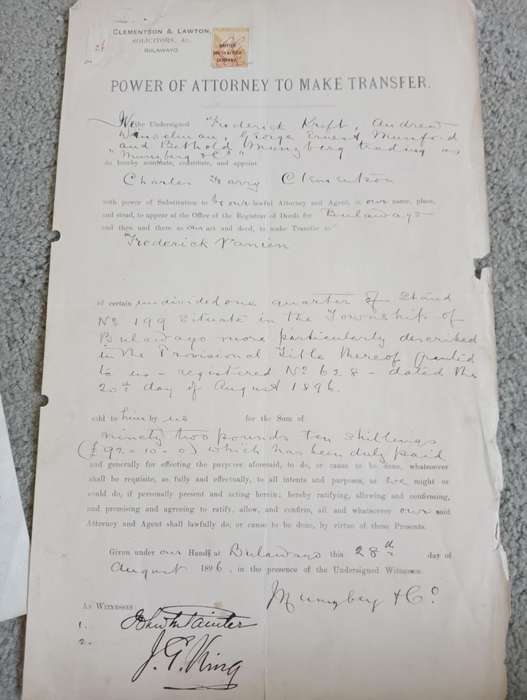 CLEMENTSON & LAWTON,
SOLICITORS, &c.
BULAWAYO.
BRITISH
SOUTH AFRICA
COMPANY.
POWER OF ATTORNEY TO MAKE TRANSFER.
We the Undersigned Frederick Kreft, Andrew
George Ernest Mumford
and Berthold Munzberg trading as
"Munzberg & Co"
do hereby nominate, constitute, and appoint
Charles Harry Clementson
with power of Substitution to be our lawful Attorney and Agent, in our name, place,
and stead, to appear at the Office of the Registrar of Deeds for Bulawayo
and then and there as our act and deed, to make Transfer to
Frederick
of certain undivided one quarter of Stand
No 199 situate in the Township of
Bulawayo more particularly described
in the Provisional Title thereof granted
to us - registered No 628 - dated the
20th day of August 1896.
sold to him by us for the Sum of
ninety two pounds ten shillings
(£92-10-0) which has been duly paid
and generally for effecting the purpose aforesaid, to do, or cause to be done, whatsoever
shall be requisite, as fully and effectually, to all intents and purposes, as we might or
could do, if personally present and acting herein; hereby ratifying, allowing and confirming,
and promising and agreeing to ratify, allow, and confirm, all and whatsoever our said
Attorney and Agent shall lawfully do, or cause to be done, by virtue of these Presents.
Given under our Hands at Bulawayo this 28th day of
August 1896 in the presence of the Undersigned Witnesses.
Munzberg & Co.
AS WITNESSES
1. Painter
2. J. G. King